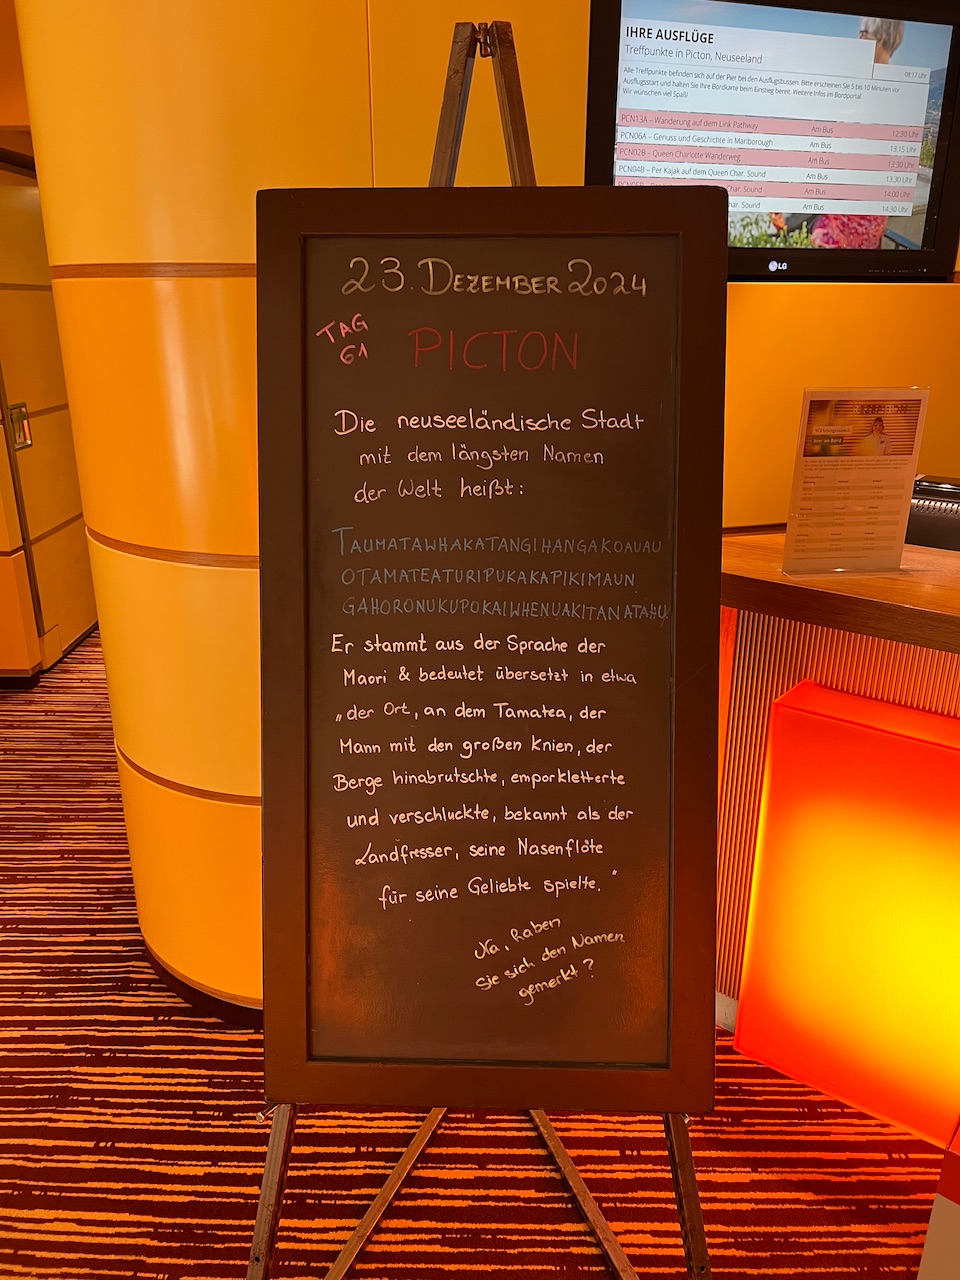 IHRE AUSFLÜGE
Treffpunkte in Picton, Neuseeland
08:17 Uhr
Alle Treffpunkte befinden sich auf der Pier bei den Ausflugsbussen. Bitte erscheinen Sie 5 bis 10 Minuten vor
Ausflugsstart und halten Sie Ihre Bordkarte beim Einstieg bereit. Weitere Infos im Bordportal.
Wir wünschen viel Spaß!
PCN13A – Wanderung auf dem Link Pathway Am Bus 12:30 Uhr
PCN06A – Genuss und Geschichte in Marlborough Am Bus 13:15 Uhr
PCN02B – Queen Charlotte Wanderweg Am Bus 13:30 Uhr
PCN04B – Per Kajak auf dem Queen Char. Sound Am Bus 13:30 Uhr
Char. Sound Am Bus 14:00 Uhr
har. Sound Am Bus 14:30 Uhr
LG
23. DEZEMBER 2024
TAG
61
PICTON
Die neuseeländische Stadt
mit dem längsten Namen
der Welt heißt:
TAUMATAWHAKATANGIHANGAKOAUAU
OTAMATEATURIPUKAKAPIKIMAUN
GAHORONUKUPOKAIWHENUAKITANATAHU
Er stammt aus der Sprache der
Maori & bedeutet übersetzt in etwa
„der Ort, an dem Tamatea, der
Mann mit den großen Knien, der
Berge hinabrutschte, emporkletterte
und verschluckte, bekannt als der
Landfresser, seine Nasenflöte
für seine Geliebte spielte."
Na, haben
Sie sich den Namen
gemerkt?